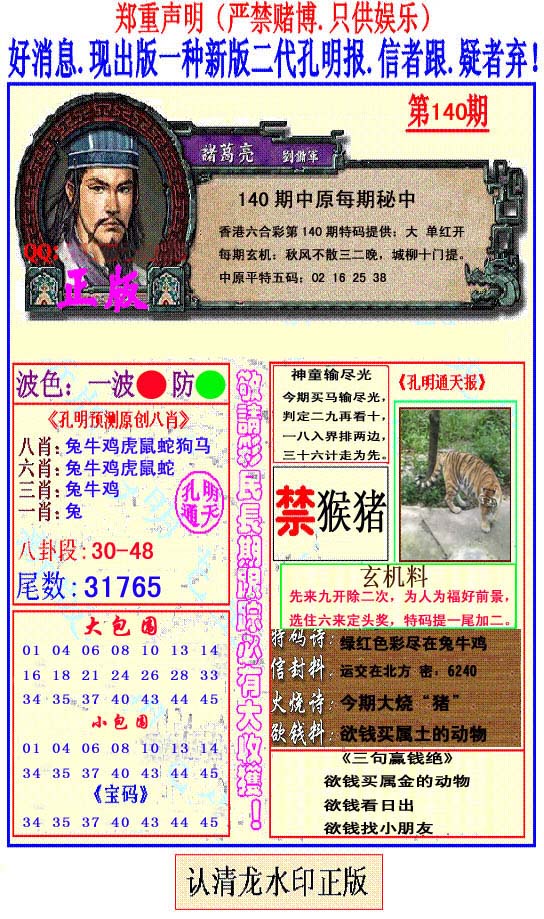 郑重声明（严禁赌博.只供娱乐）
好消息.现出版一种新版二代孔明报.信者跟.疑者弃！
第140期
諸葛亮 劉備軍
140 期中原每期秘中
香港六合彩第 140 期特码提供：大 单红开
每期玄机：秋风不散三二晚，城柳十门提。
中原平特五码：02 16 25 38
QQ:
正版
波色：一波 防
《孔明预测原创八肖》
八肖：兔牛鸡虎鼠蛇狗马
六肖：兔牛鸡虎鼠蛇
三肖：兔牛鸡
一肖：兔
孔明
通天
八卦段：30-48
尾数：31765
大包围
01 04 06 08 10 13 14
16 18 21 24 26 28 33
34 35 37 40 43 44 45
小包围
01 04 06 08 10 13 14
34 35 37 40 43 44 45
《宝码》
34 35 37 40 43 44 45
敬請彩民長期跟踪必有大收獲！
神童输尽光
今期买马输尽光，
判定二九再看十，
一八入界排两边，
三十六计走为先。
《孔明通天报》
禁猴猪
玄机料
先来九开除二次，为人为福好前景，
选住六来定头奖，特码提一尾加二。
特码诗：绿红色彩尽在兔牛鸡
信封料：运交在北方 密：6240
火烧诗：今期大烧“猪”
欲钱料：欲钱买属土的动物
《三句赢钱绝》
欲钱买属金的动物
欲钱看日出
欲钱找小朋友
认清龙水印正版